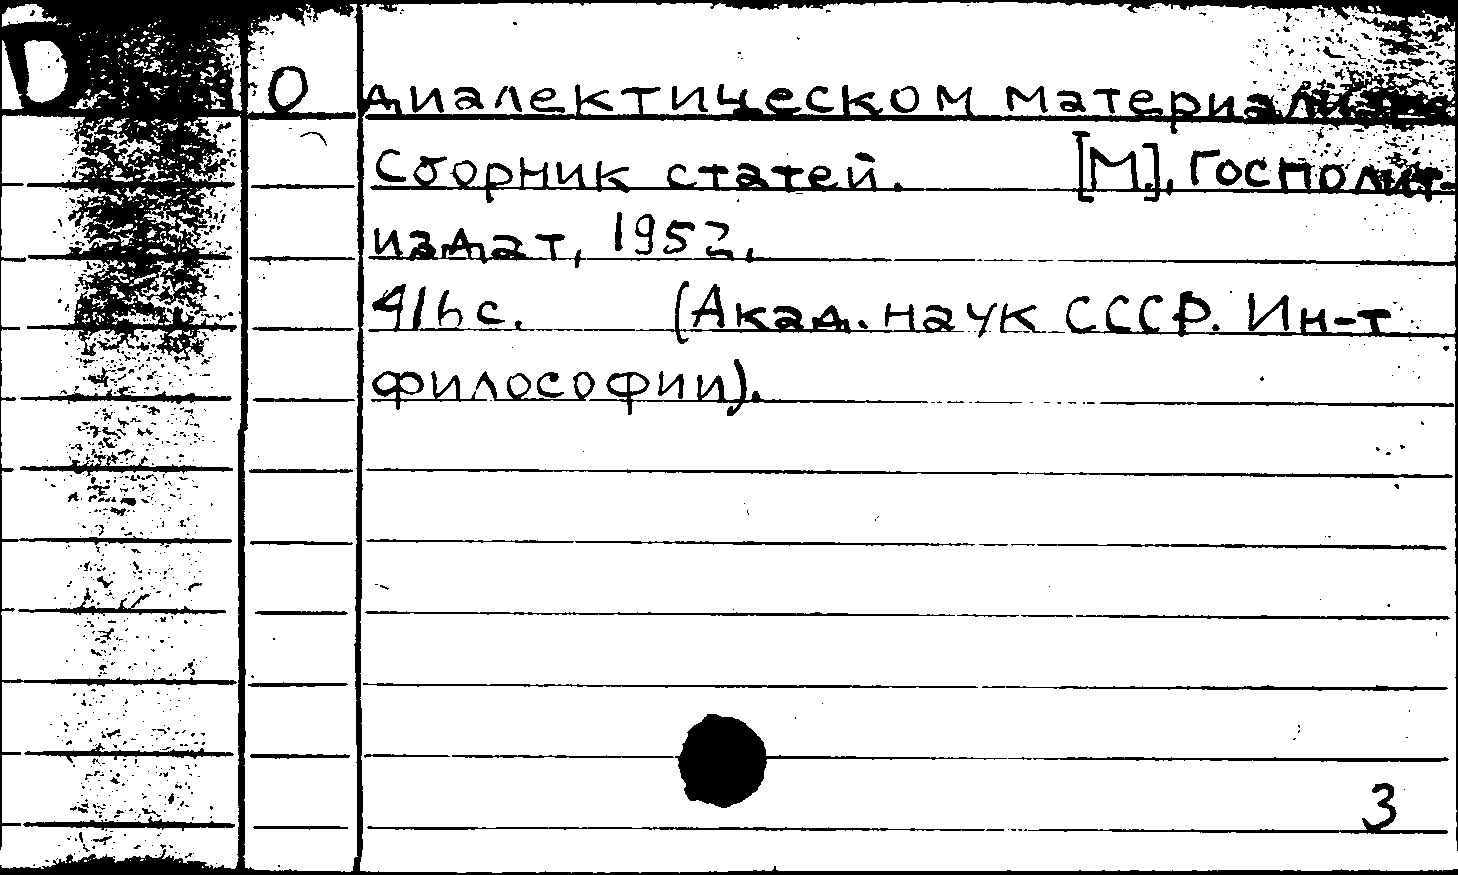 D О диалектическом материализме
Сборник статей. [М.], Госполит-
издат, 1952.
416 с. (Акад. наук СССР. Ин-т
философии).
3